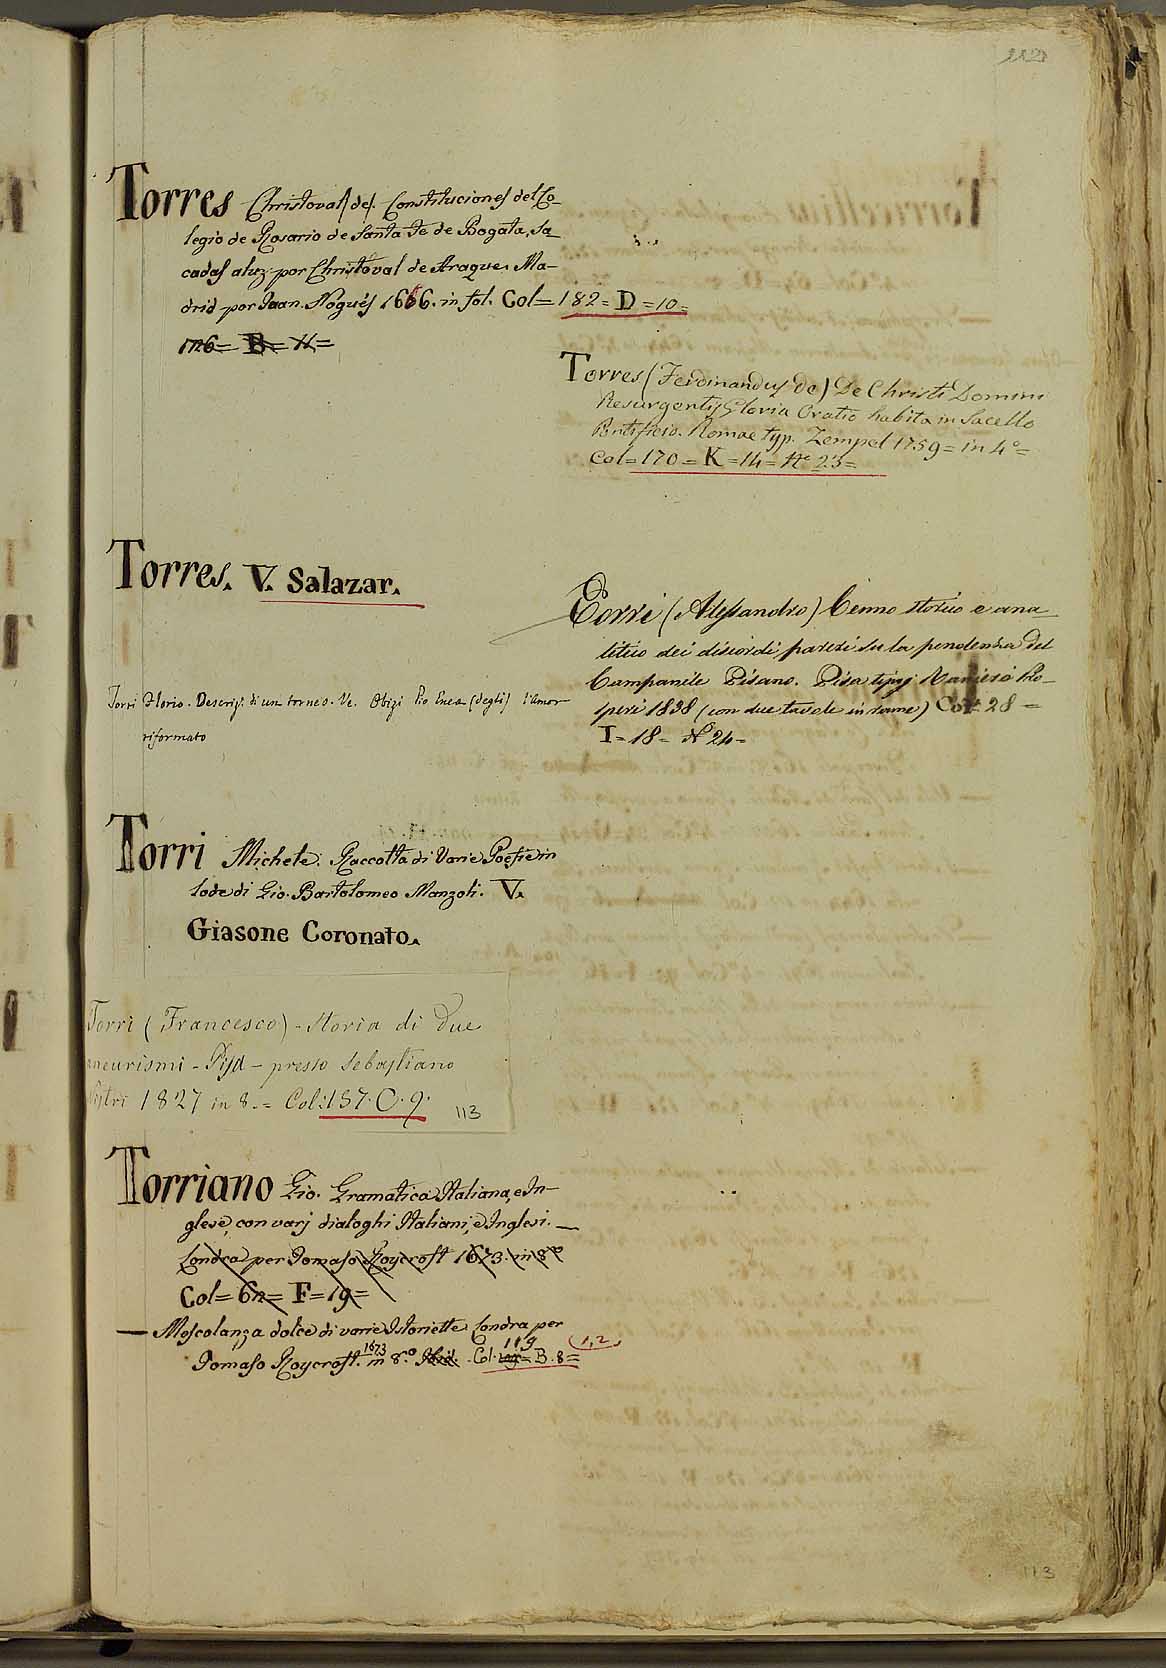 112
Torres Christoval (de). Constituciones del Co-
legio de Rosario de Santa Fe de Bogata, Sa-
cadas a luz por Christoval de Araque. Ma-
drid por Juan Nogués 1666. in fol. Col = 182 = D = 10 =
126 = B = 11 =
Torres (Ferdinandus de) De Christi Domini
Resurgentis Gloria Oratio habita in Sacello
Pontificio. Romae typ. Zempel 1759 = in 4° =
Col = 170 = K = 14 = N° 23 =
Torres. V. Salazar.
Torri (Alessandro) Cenno storico e ana-
litico dei discordi pareri su la pendenza del
Campanile Pisano. Pisa Ranieri Pro-
speri 1838 (con due tavole in rame) Col. 28 =
I = 18 = N° 24 =
Torri Florio. Descriz. di un torneo. Ve. Obizi Pio Enea (degli) l'Amor
riformato
Torri Michele. Raccolta di Varie Poesie in
lode di Gio. Bartolomeo Manzoli. V.
Giasone Coronato.
Torri (Francesco) - Storia di due
aneurismi - Pisa - presso Sebastiano
Nistri 1827 in 8. = Col: 157. O. 9.
113
Torriano Gio. Gramatica Italiana, e In-
glese, con varj dialoghi Italiani, e Inglesi. —
Londra per Tomaso Roycroft 1673. in 8°
Col = 62 = F = 19 =
— Moscolanza dolce di varie Istoriette Londra per
Tomaso Roycroft. 1673 in 8.° Ibid. Col. 119 = B. 8 = (1,2)
113